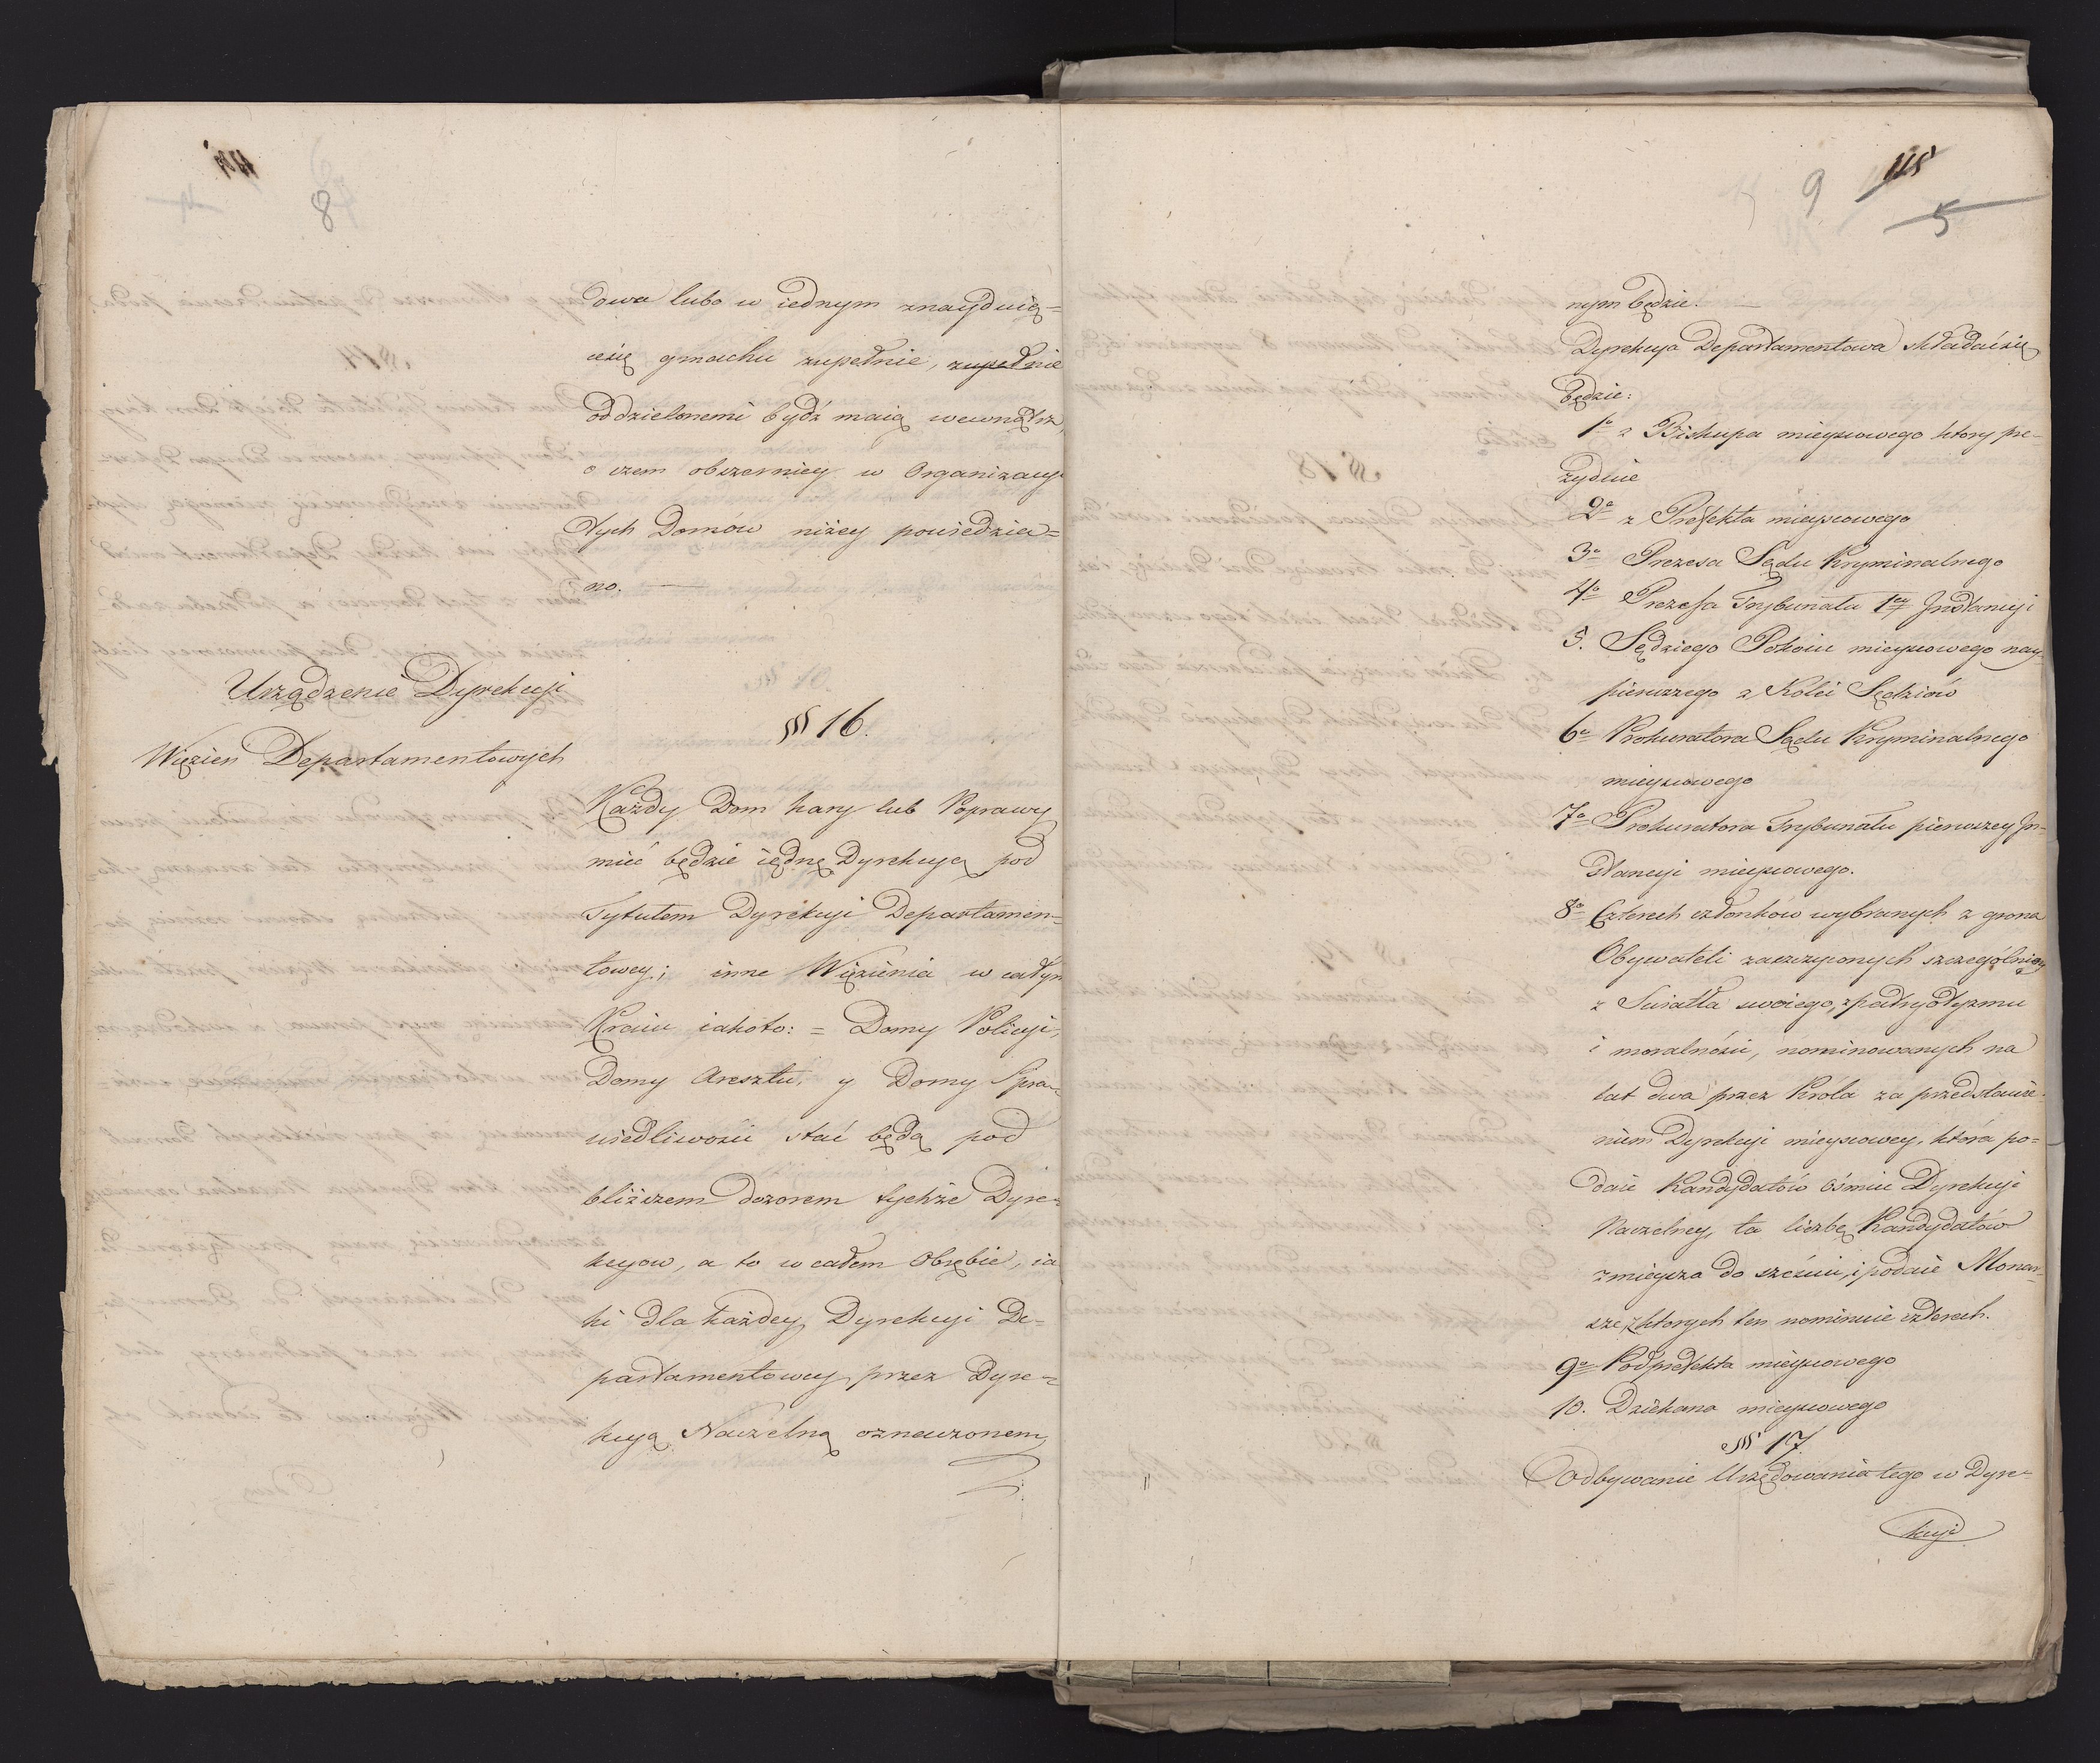 8
dowa lubo w iednym znayduią=
cesię gmachu zupełnie, zupełnie
oddzielonemi bydź maią wewnątrz,
o czem obszerniey w Organizacyi
tych Domów niżey powiedzia=
no.
Urządzenie Dyrekcyi
Więzien Departamentowych
§ 16.
Każdy Dom kary lub Poprawy
mieć będzie iędnę Dyrekcyą pod
Tytułem Dyrekcyi Departamen=
towey; inne Więzienia w całym
Kraiu iakoto: = Domy Policyi,
Domy Aresztu, y Domy Spra=
wiedliwości stać będą pod
bliższem dozorem tychże Dyre=
kcyow, a to w całem Obrębie, ia
ki dla każdey Dyrekcyi De=
partamentowey przez Dyre=
kcyą Naczelną oznaczonem
9
115
5
nym będzie.
Dyrekcya Departamentowa składaćsię
będzie:
1o z Biskupa mieyscowego ktory pre=
zyduie
2o z Prefekta mieyscowego
3o Prezesa Sądu Kryminalnego
4o Prezessa Trybunału 1ey Instancyi
5. Sędziego Pokoiu mieyscowego nay=
pierwszego z Kolei Sędziów
6o Prokuratora Sądu Kryminalnego
mieyscowego
7o Prokuratora Trybunału pierwszey In=
stancyi mieyscowego.
8o Czterech członków wybranych z grona
Obywateli zaszczyconych szczególniey
z Swiatła swoiego, z patryotyzmu
i moralności, nominowanych na
lat dwa przez Króla za przedstawie=
niem Dyrekcyi mieyscowey, która po=
daie Kandydatów ośmiu Dyrekcyi
Naczelney, ta liczbę Kandydatów
zmieysza do sześciu, i podaie Monar=
sze, z ktorych ten nominuie czterech.
9o Podprefekta mieyscowego
10. Dziekana mieyscowego
§ 17.
Odbywanie Urzędowania tego w Dyre=
kcyi